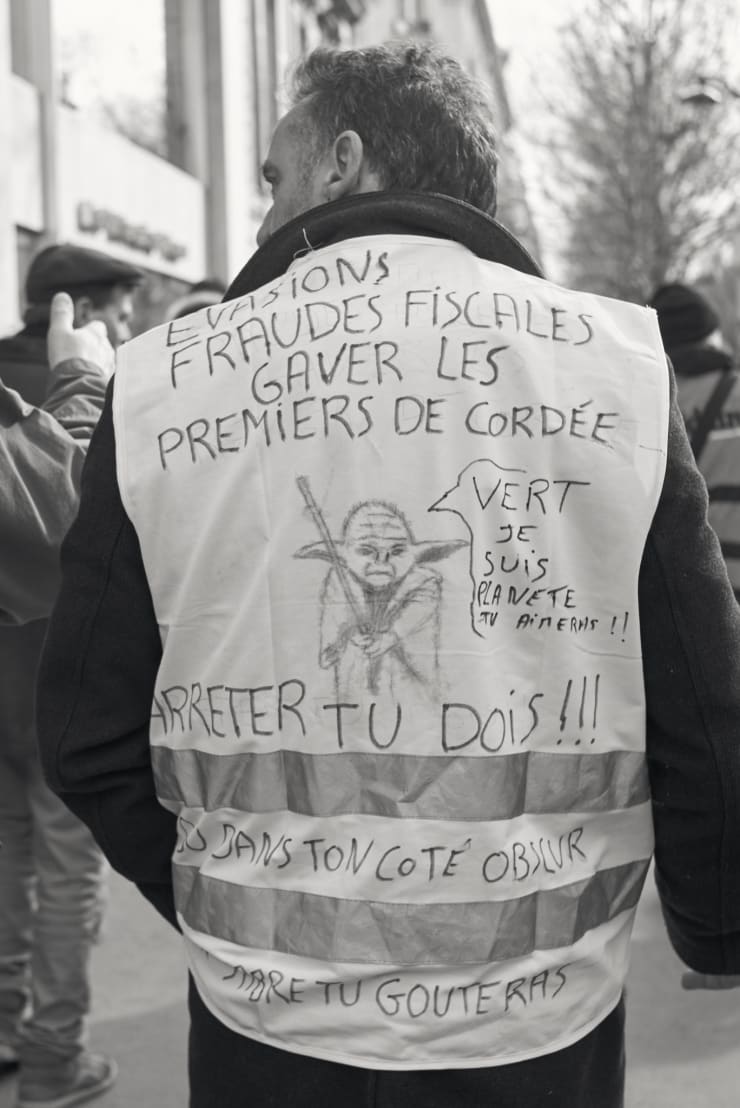 EVASIONS
FRAUDES FISCALES
GAVER LES
PREMIERS DE CORDÉE
VERT
JE
SUIS
PLANETE
TU AIMERAS !!
ARRETER TU DOIS !!!
DANS TON COTÉ OBSCUR
TU GOUTERAS